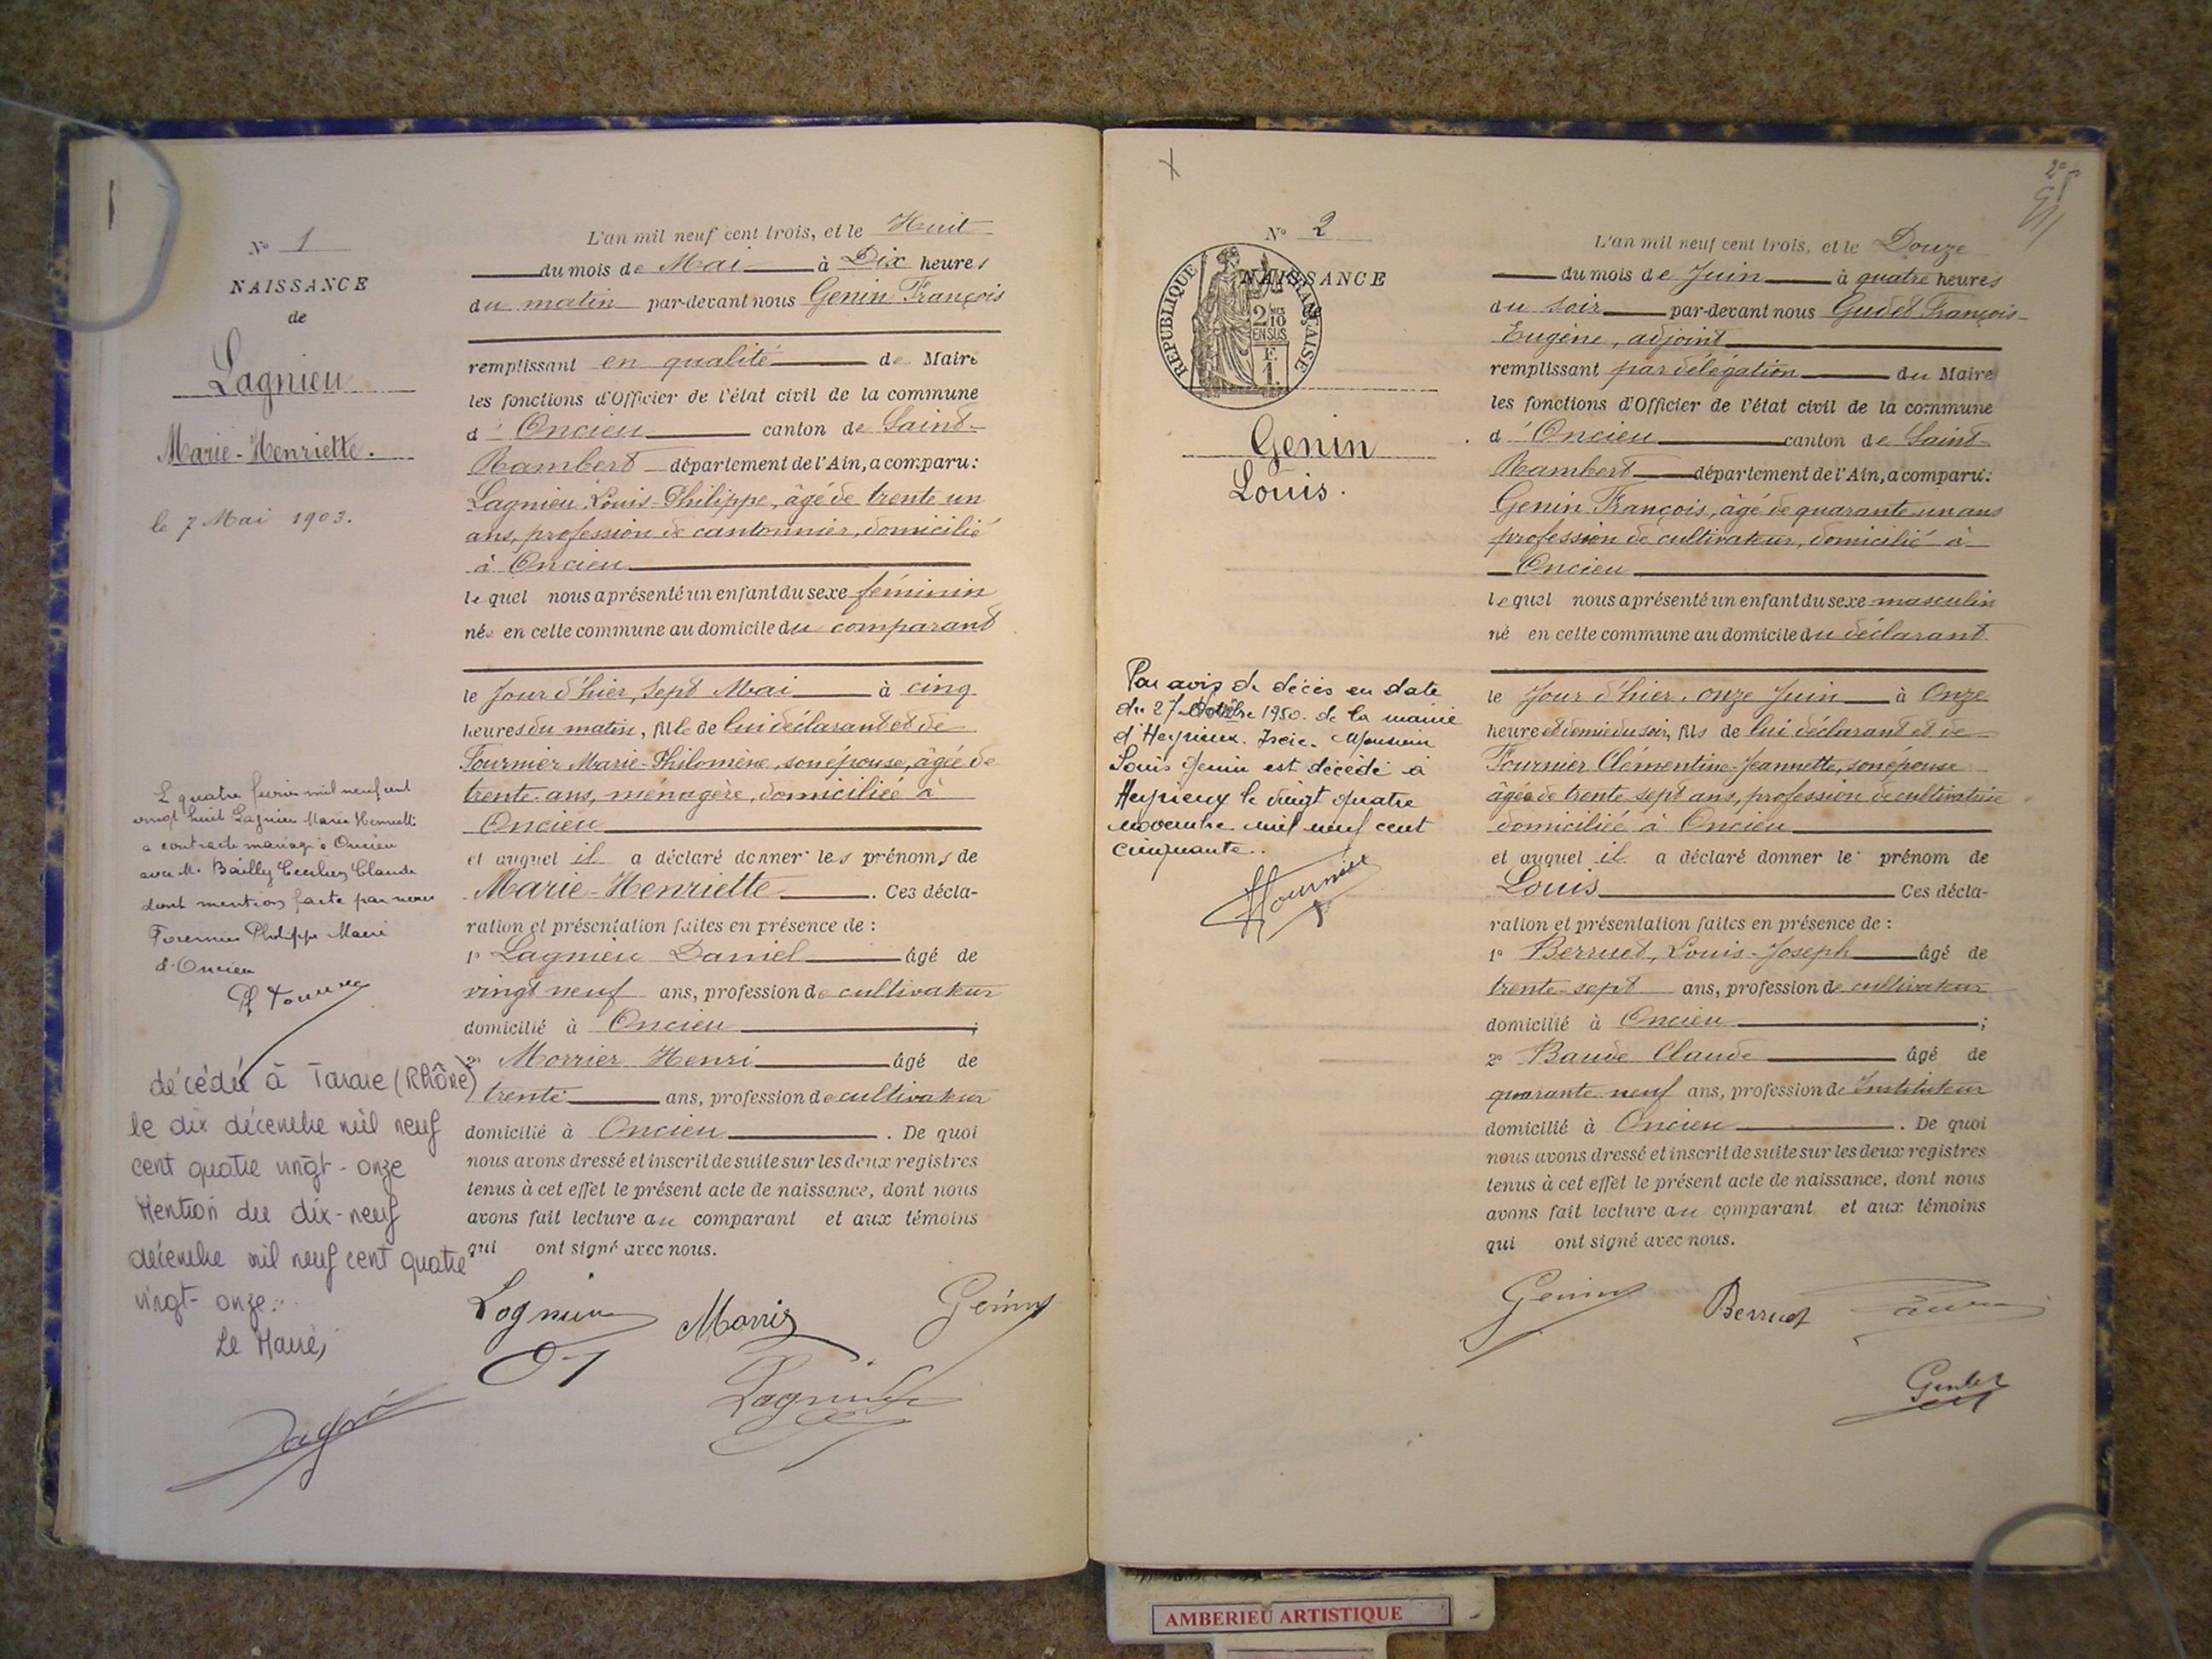 N° 1
NAISSANCE
de
Lagnieu
Marie-Henriette.
le 7 Mai 1903.
L quatre fevrier mil neuf cent
vingt huit Lagnieu Marie Henriette
a contracté mariage à Oncieu
avec M. Bailly Claude
dont mention faite par nous
Fournier Philippe Maire
d'Oncieu
décédée à Tarare (Rhône)
le dix décembre mil neuf
cent quatre vingt-onze
Mention du dix-neuf
décembre mil neuf cent quatre
vingt-onze.
Le Maire,
L'an mil neuf cent trois, et le Huit
du mois de Mai à Dix heures
du matin par-devant nous Genin François
remplissant en qualité de Maire
les fonctions d'Officier de l'état civil de la commune
d'Oncieu canton de Saint-
Rambert département de l'Ain, a comparu:
Lagnieu Louis-Philippe, âgé de trente un
ans, profession de cantonnier, domicilié
à Oncieu
lequel nous a présenté un enfant du sexe féminin
née en cette commune au domicile du comparant
le Jour d'hier, sept Mai à cinq
heures du matin, fille de lui déclarant et de
Fournier Marie-Philomène, son épouse, âgée de
trente ans, ménagère, domiciliée à
Oncieu
et auquel il a déclaré donner les prénoms de
Marie-Henriette. Ces décla-
ration et présentation faites en présence de :
1° Lagnieu Daniel âgé de
vingt neuf ans, profession de cultivateur
domicilié à Oncieu ;
2° Morrier Henri âgé de
trente ans, profession de cultivateur
domicilié à Oncieu. De quoi
nous avons dressé et inscrit de suite sur les deux registres
tenus à cet effet le présent acte de naissance, dont nous
avons fait lecture au comparant et aux témoins
qui ont signé avec nous.
Lagnieu
Genin
Lagnieu
N° 2
NAISSANCE
de
REPUBLIQUE FRANÇAISE
2/10 EN SUS
F. 1.
Genin
Louis.
Par avis de décès en date
du 27 1950. de la mairie
d'Heyrieux. Isère. Monsieur
Louis Genin est décédé à
Heyrieux le vingt quatre
novembre mil neuf cent
cinquante.
Fournier
L'an mil neuf cent trois, et le Douze
du mois de Juin à quatre heures
du soir par-devant nous Gudet François-
Eugène, adjoint
remplissant par délégation du Maire
les fonctions d'Officier de l'état civil de la commune
d'Oncieu canton de Saint-
Rambert département de l'Ain, a comparu:
Genin François, âgé de quarante-un ans
profession de cultivateur, domicilié à
Oncieu
lequel nous a présenté un enfant du sexe masculin
né en cette commune au domicile du déclarant
le Jour d'hier, onze Juin à Onze
heure et demie du soir, fils de lui déclarant et de
Fournier Clémentine-Jeannette, son épouse
âgée de trente sept ans, profession de cultivatrice
domiciliée à Oncieu
et auquel il a déclaré donner le prénom de
Louis Ces décla-
ration et présentation faites en présence de :
1° Berruet, Louis-Joseph âgé de
trente-sept ans, profession de cultivateur
domicilié à Oncieu ;
2° Baude Claude âgé de
quarante neuf ans, profession de Instituteur
domicilié à Oncieu. De quoi
nous avons dressé et inscrit de suite sur les deux registres
tenus à cet effet le présent acte de naissance, dont nous
avons fait lecture au comparant et aux témoins
qui ont signé avec nous.
Genin Berruet
Gudet
AMBERIEU ARTISTIQUE